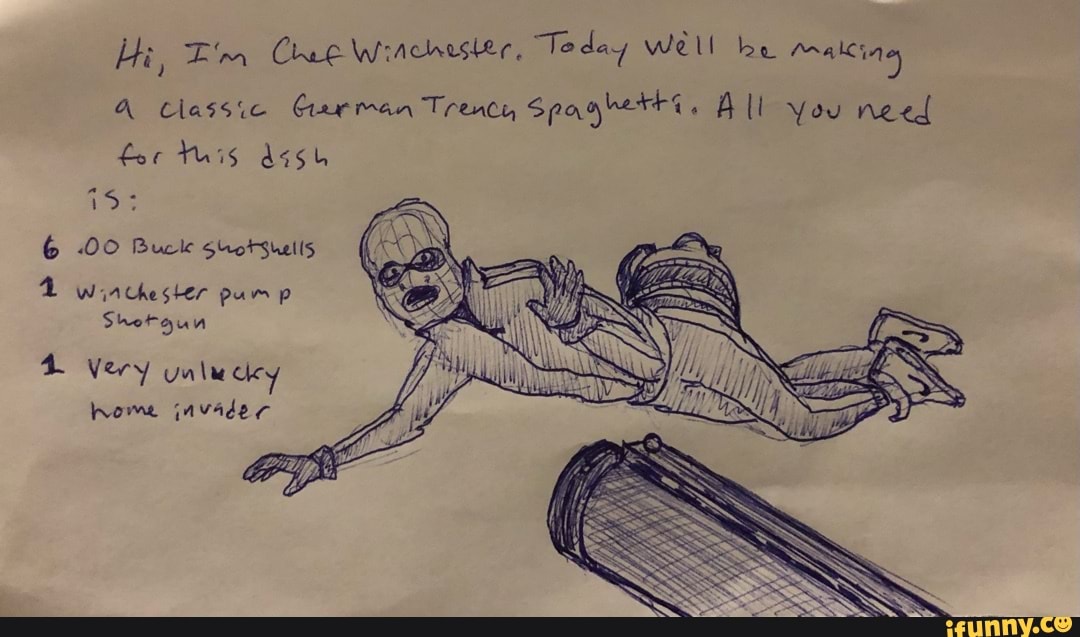 Hi, I'm Chef Winchester. Today we'll be making
a classic German Trench spaghetti. All you need
for this dish
is:
6 .00 Buck shotshells
1 Winchester pump
shotgun
1 very unlucky
home invader
ifunny.co